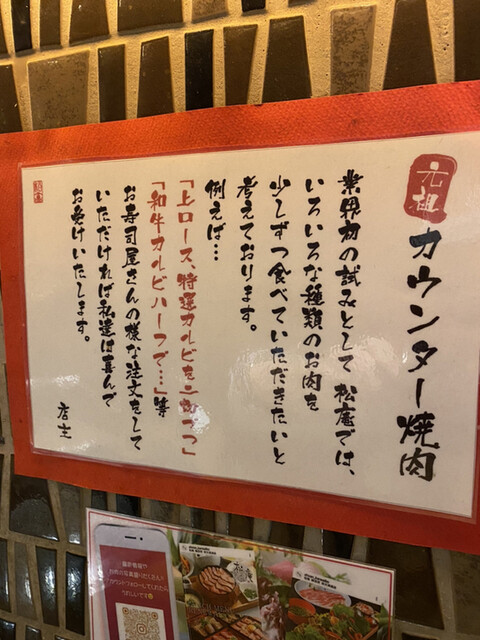 元祖
カウンター焼肉
業界初の試みとして松庵では、
いろいろな種類のお肉を
少しずつ食べていただきたいと
考えております。
例えば…
「上ロース、特選カルビを二切づつ」
「和牛カルビハーフで…」等
お寿司屋さんの様な注文をして
いただければ私達は喜んで
お受けいたします。
店主
最新情報や